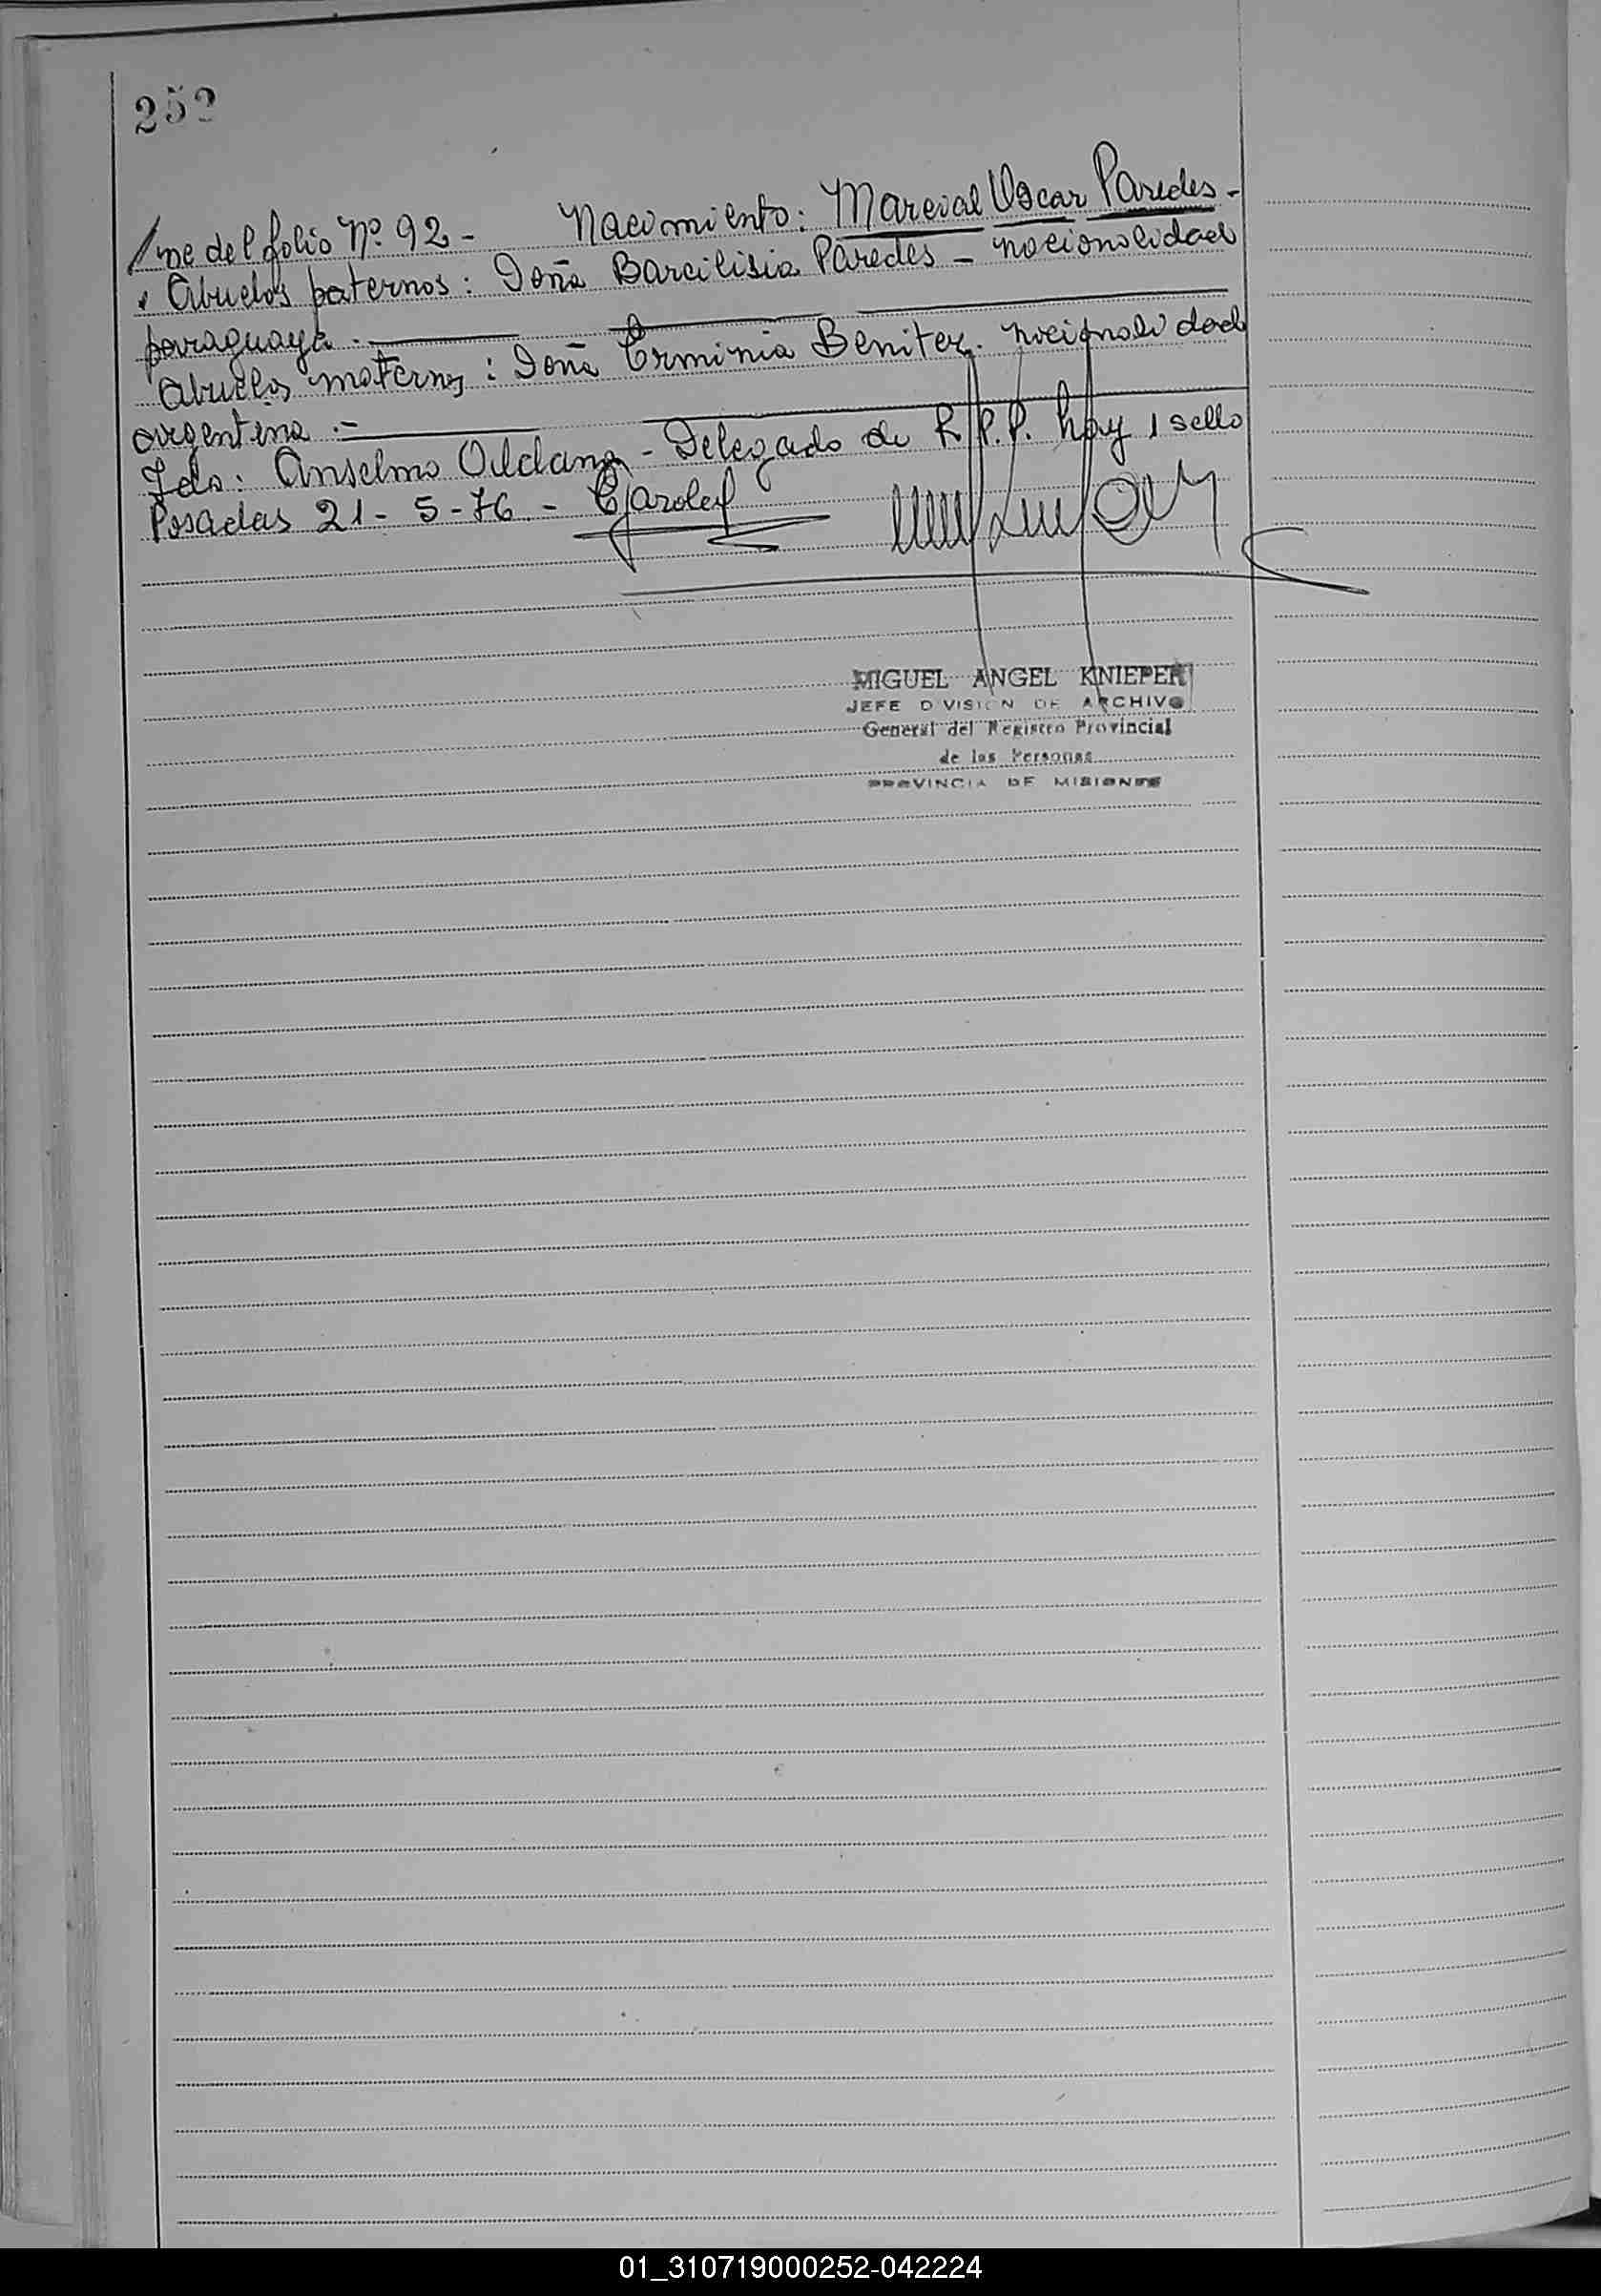 252
/ne del folio Nº 92 - Nacimiento: Marcial Oscar Paredes -
Abuelos paternos: Doña Barcilisia Paredes - nacionalidad
paraguaya.
Abuelos maternos: Doña Erminia Benitez. nacionalidad
argentina.-
Fdo: Anselmo Oldana - Delegado de R.P.P. hay 1 sello
Posadas 21-5-76.-
MIGUEL ANGEL KNIEPER
JEFE DIVISION DE ARCHIVO
General del Registro Provincial
de las Personas
PROVINCIA DE MISIONES
01_310719000252-042224